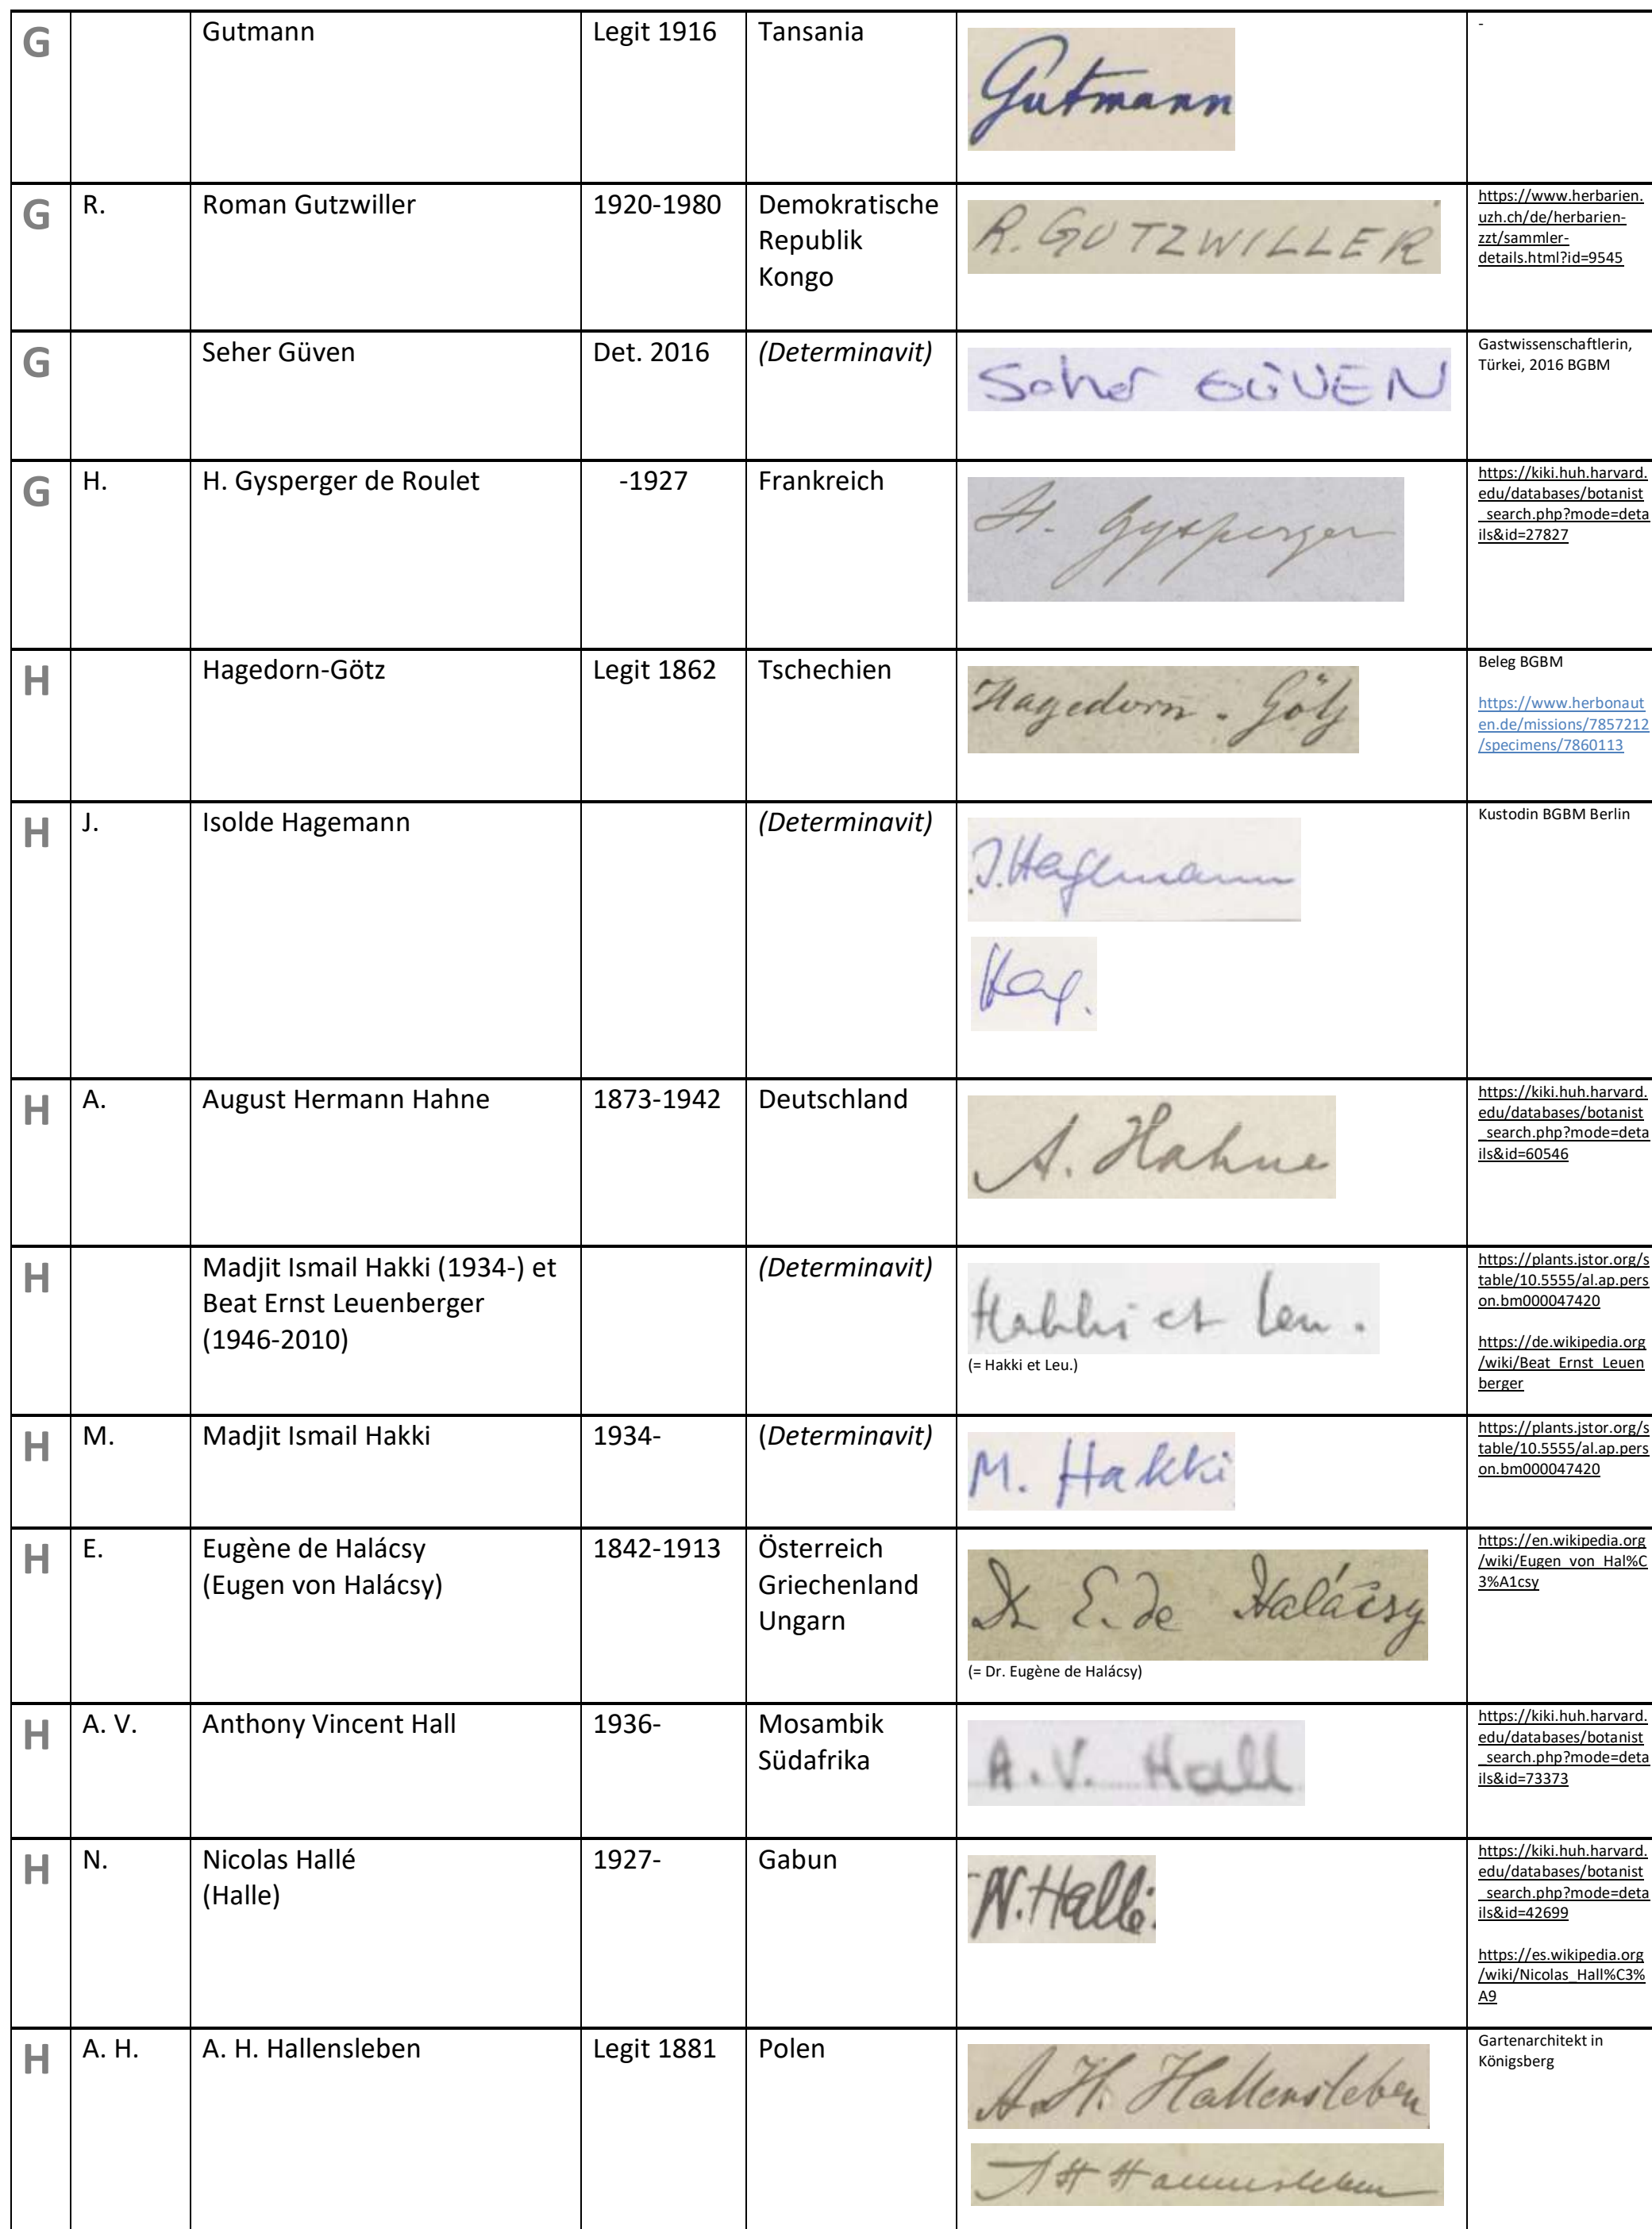 G Gutmann Legit 1916 Tansania Gutmann -
G R. Roman Gutzwiller 1920-1980 Demokratische Republik Kongo R. GUTZWILLER https://www.herbarien.
uzh.ch/de/herbarien-
zzt/sammler-
details.html?id=9545
G Seher Güven Det. 2016 (Determinavit) Seher GÜVEN Gastwissenschaftlerin,
Türkei, 2016 BGBM
G H. H. Gysperger de Roulet -1927 Frankreich H. Gysperger https://kiki.huh.harvard.
edu/databases/botanist
_search.php?mode=deta
ils&id=27827
H Hagedorn-Götz Legit 1862 Tschechien Hagedorn - Götz Beleg BGBM
https://www.herbonaut
en.de/missions/7857212
/specimens/7860113
H J. Isolde Hagemann (Determinavit) J. Hagemann Kustodin BGBM Berlin
Hag.
H A. August Hermann Hahne 1873-1942 Deutschland A. Hahne https://kiki.huh.harvard.
edu/databases/botanist
_search.php?mode=deta
ils&id=60546
H Madjit Ismail Hakki (1934-) et (Determinavit) Hakki et Leu. https://plants.jstor.org/s
Beat Ernst Leuenberger table/10.5555/al.ap.pers
(1946-2010) on.bm000047420
(= Hakki et Leu.) https://de.wikipedia.org
/wiki/Beat_Ernst_Leuen
berger
H M. Madjit Ismail Hakki 1934- (Determinavit) M. Hakki https://plants.jstor.org/s
table/10.5555/al.ap.pers
on.bm000047420
H E. Eugène de Halácsy 1842-1913 Österreich Dr. E. de Halácsy https://en.wikipedia.org
(Eugen von Halácsy) Griechenland /wiki/Eugen_von_Hal%C
Ungarn 3%A1csy
(= Dr. Eugène de Halácsy)
H A. V. Anthony Vincent Hall 1936- Mosambik A. V. Hall https://kiki.huh.harvard.
Südafrika edu/databases/botanist
_search.php?mode=deta
ils&id=73373
H N. Nicolas Hallé 1927- Gabun N. Hallé https://kiki.huh.harvard.
(Halle) edu/databases/botanist
_search.php?mode=deta
ils&id=42699
https://es.wikipedia.org
/wiki/Nicolas_Hall%C3%
A9
H A. H. A. H. Hallensleben Legit 1881 Polen A. H. Hallensleben Gartenarchitekt in
Königsberg
A H Hallensleben